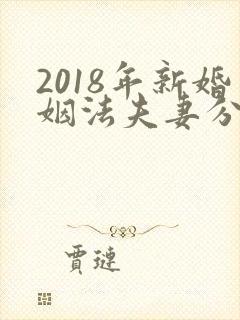 2018年新婚
姻法夫妻分
賈璉